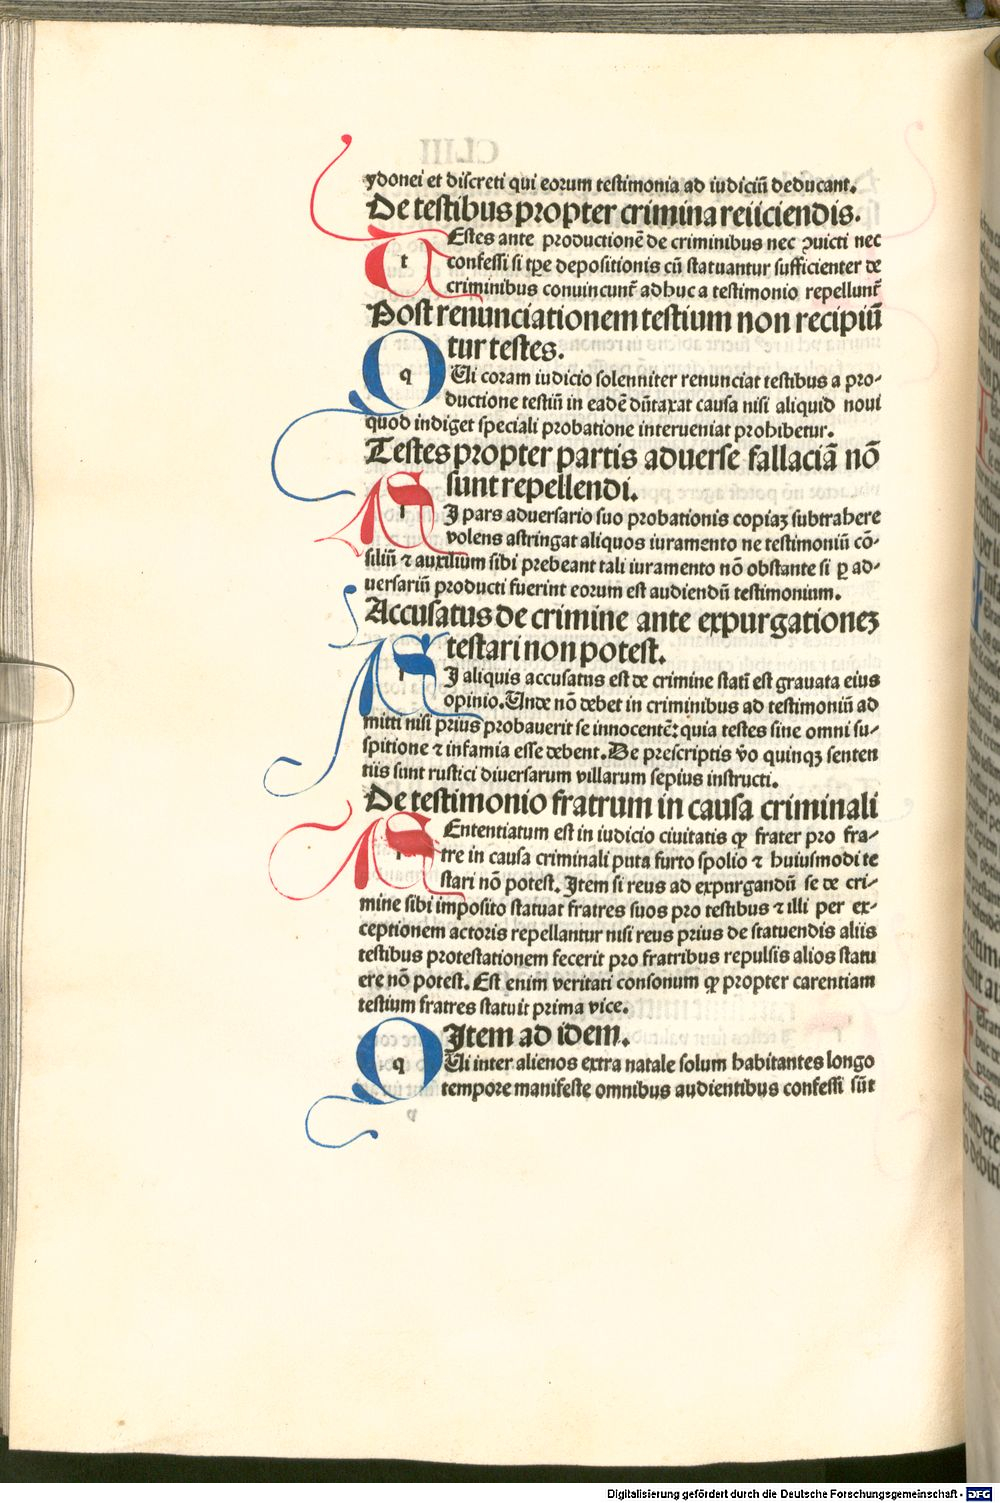 ydonei et discreti qui eorum testimonia ad iudiciū deducant.
De testibus propter crimina reiiciendis.
tEstes ante productionē de criminibus nec ꝯuicti nec
confessi si tꝑe depositionis cū statuantur sufficienter de
criminibus conuincunt᷑ adhuc a testimonio repellunt᷑
Post renunciationem testium non recipiū
tur testes.
qUi coram iudicio solenniter renunciat testibus a pro-
ductione testiū in eadē dūtaxat causa nisi aliquid noui
quod indiget speciali probatione interueniat prohibetur.
Testes propter partis aduerse fallaciā nō
sunt repellendi.
I pars aduersario suo probationis copiaꝫ subtrahere
volens astringat aliquos iuramento ne testimoniū cō-
siliū ⁊ auxilium sibi prebeant tali iuramento nō obstante si ꝑ ad-
uersariū producti fuerint eorum est audiendū testimonium.
Accusatus de crimine ante expurgationeꝫ
testari non potest.
I aliquis accusatus est de crimine statī est grauata eius
opinio. Unde nō debet in criminibus ad testimoniū ad
mitti nisi prius probauerit se innocentē: quia testes sine omni su-
spitione ⁊ infamia esse debent. De prescriptis v̄o quinqꝫ senten
tiis sunt rustici diuersarum villarum sepius instructi.
De testimonio fratrum in causa criminali
Ententiatum est in iudicio ciuitatis ꝙ frater pro fra-
tre in causa criminali puta furto spolio ⁊ huiusmodi te
stari nō potest. Item si reus ad expurgandū se de cri-
mine sibi imposito statuat fratres suos pro testibus ⁊ illi per ex-
ceptionem actoris repellantur nisi reus prius de statuendis aliis
testibus protestationem fecerit pro fratribus repulsis alios statu
ere nō potest. Est enim veritati consonum ꝙ propter carentiam
testium fratres statuit prima vice.
Item ad idem.
qUi inter alienos extra natale solum habitantes longo
tempore manifeste omnibus audientibus confessi sūt
Digitalisierung gefördert durch die Deutsche Forschungsgemeinschaft - DFG